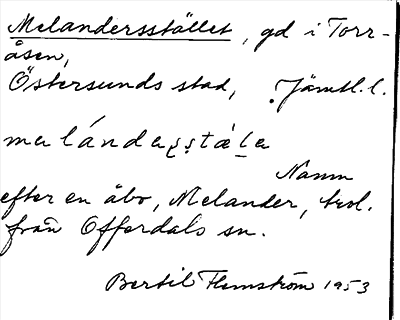 Melandersstället, gd i Torr-
åsen,
Östersunds stad, Jämtl. l.
melándaʂʂtǽḷe
Namn
efter en åbo, Melander, trol.
från Offerdals sn.
Bertil Flemström 1953